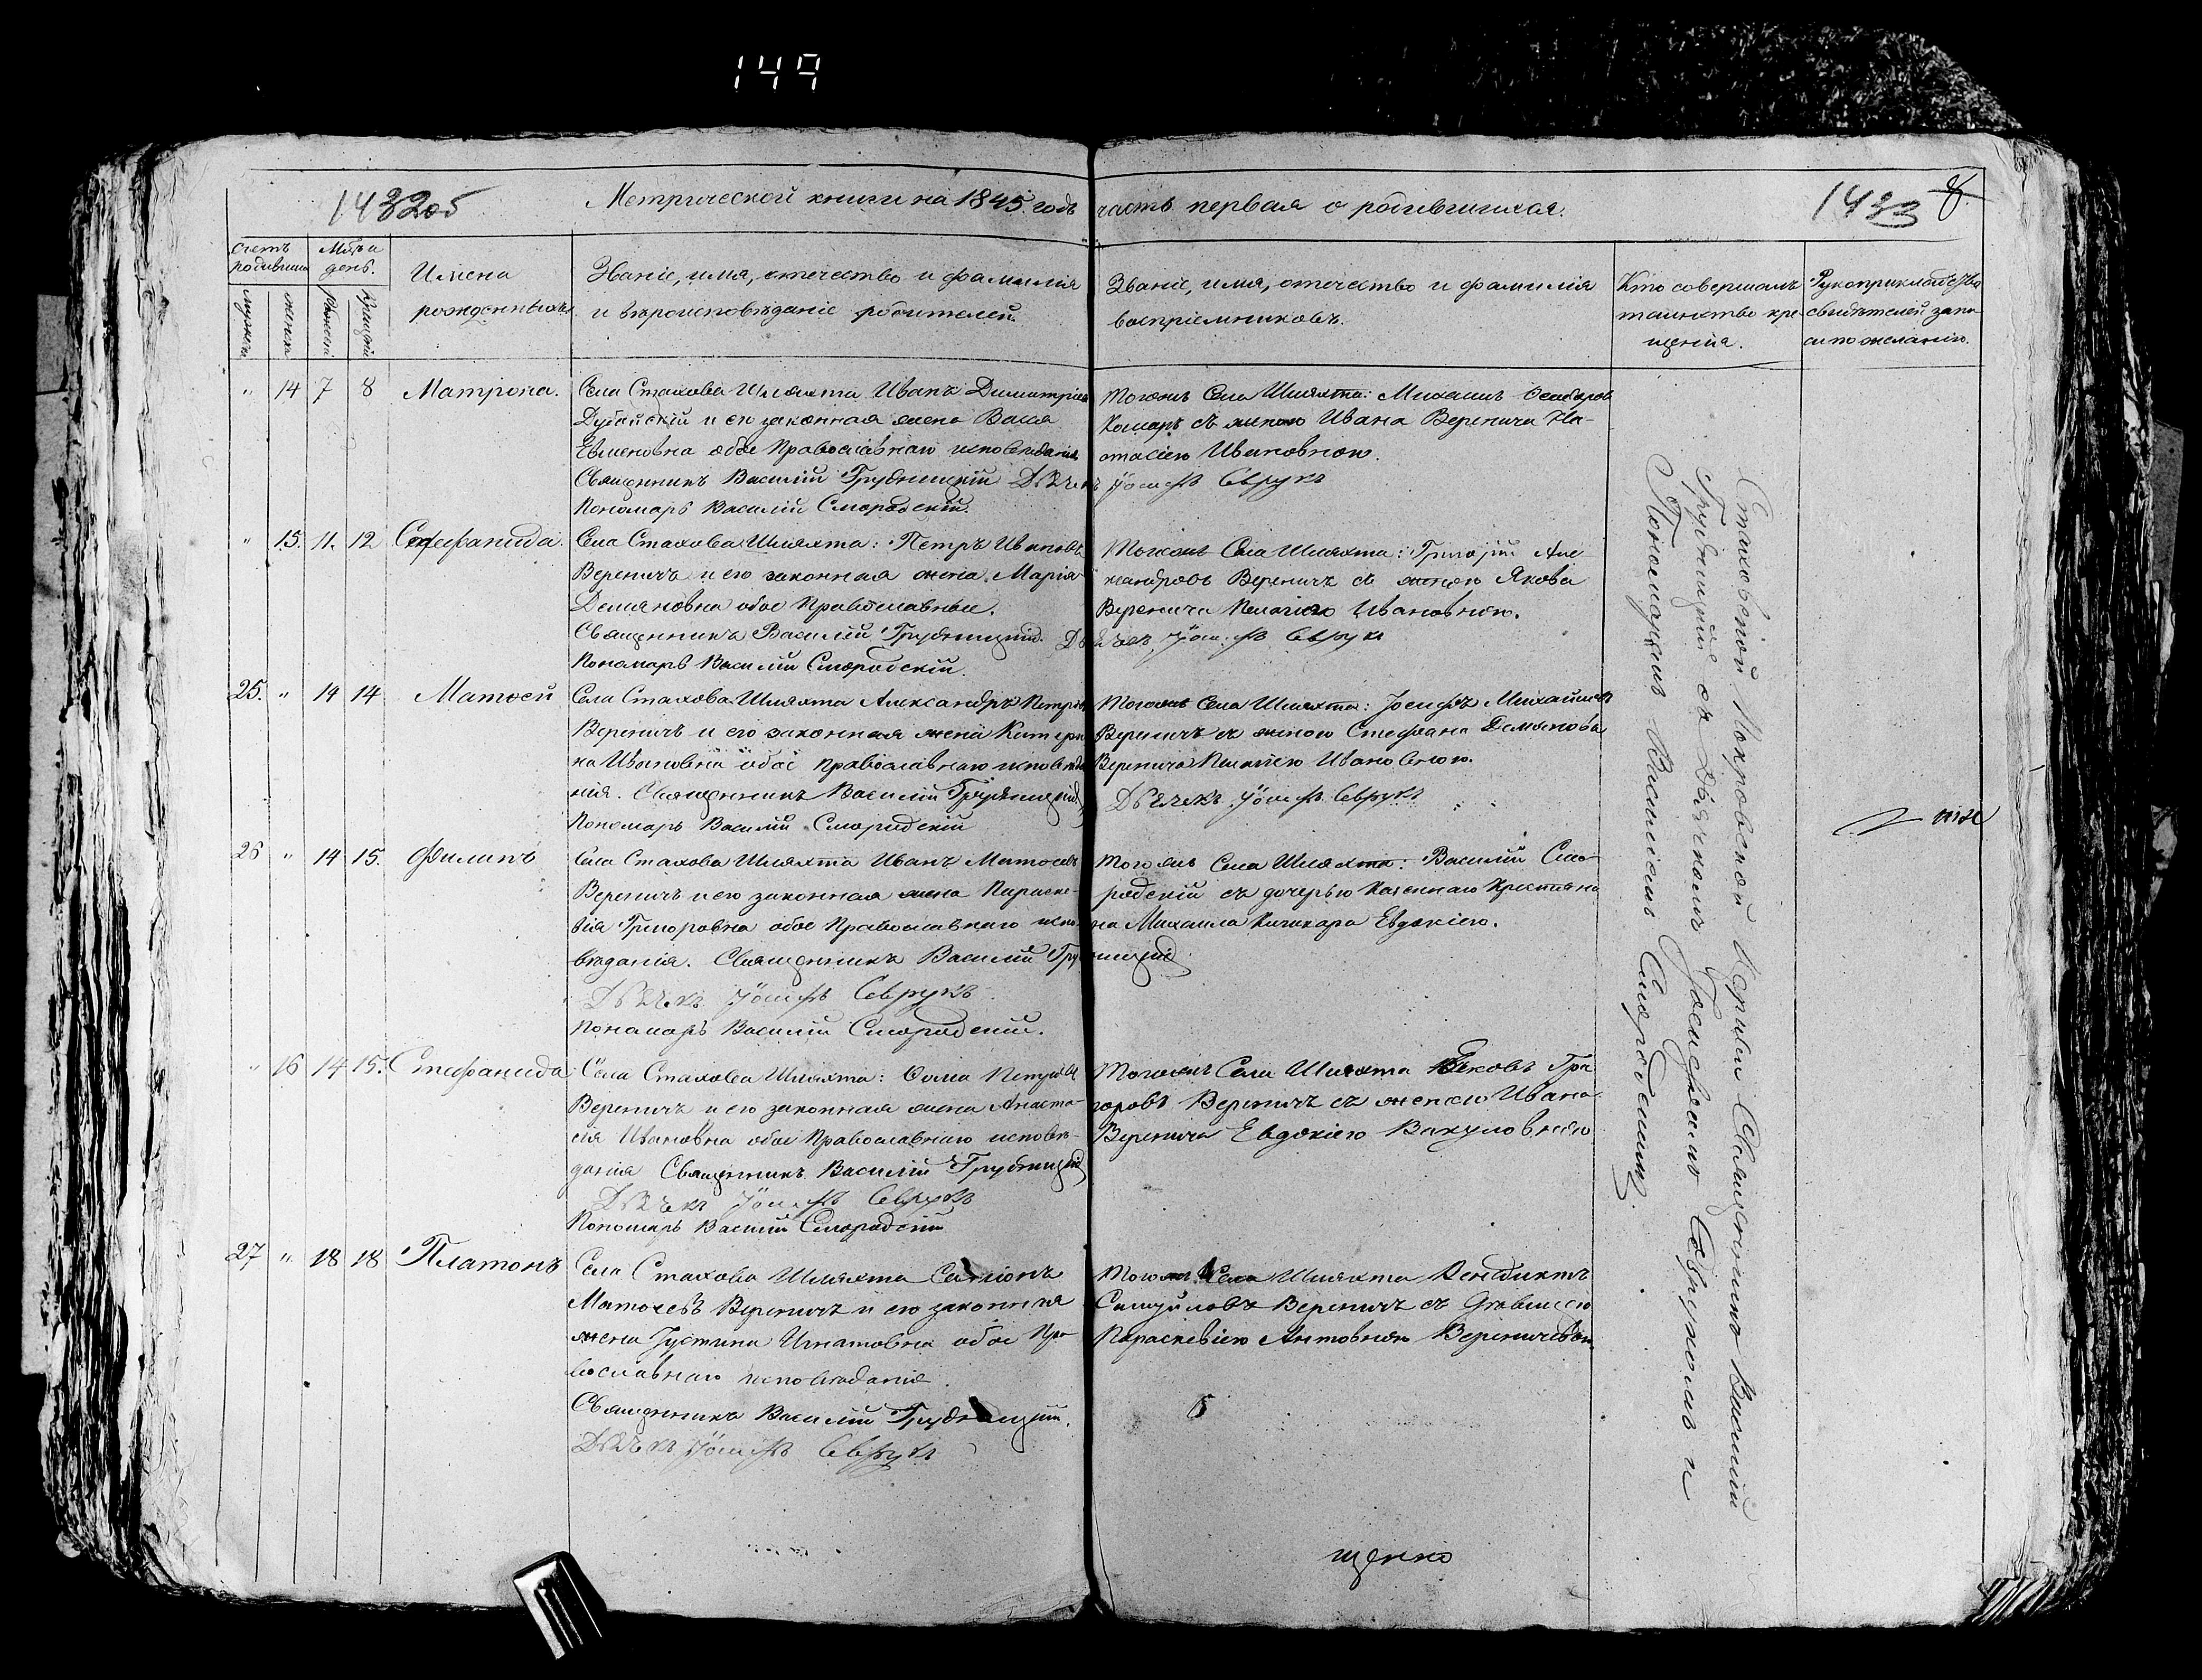 149
14320б
Метрической книги на 1845. годъ часть первая о родившихся.
1433 8.
Счетъ родивших
Мѣсъ и день.
мужеска
женска
рожденія
крещенія
Имена
рожденныхъ
Званіе, имя, отечество и фамилія
и вѣроисповѣданіе родителей.
Званіе, имя, отечество и фамилія
воспріемниковъ.
Кто совершалъ
таинство кре-
щенія.
Рукоприкладство
свидѣтелей запи-
си по желанію.
" 14 7 8 Матрона.
Села Стахова Шляхта Иванъ Димитріевъ
Дубайскій и его законная жена Васса
Евменовна обое Православнаго исповѣданія
Священникъ Василій Грудницкій Дьячекъ Іосифъ Севрукъ
Пономарь Василій Смородскій.
Тогожъ Села Шляхта: Михаилъ Ѳеодоровъ
Комаръ съ женою Ивана Веренича На-
стасіею Ивановною.
" 15. 11. 12 Стефанида.
Села Стахова Шляхта: Петръ Ивановъ
Вереничъ и его законная жена Марія
Демяновна обое Православные.
Священникъ Василій Грудницкій. Дьячекъ Іосифъ Севрукъ
Пономарь Василій Смородскій.
Тогожъ Села Шляхта: Григорій Але
ксандровъ Вереничъ съ женою Якова
Веренича Пелагіею Ивановною.
25. " 14 14 Матѳей
Села Стахова Шляхта Александръ Петровъ
Вереничъ и его законная жена Катери
на Ивановна обое православнаго исповѣда
нія. Священникъ Василій Грудницкій
Пономарь Василій Смородскій
Тогожъ Села Шляхта: Іосифъ Михайловъ
Вереничъ съ женою Стефана Демянова
Веренича Пелагіею Ивановною.
Дьячекъ Іосифъ Севрукъ
26 " 14 15. Филипъ
Села Стахова Шляхта Иванъ Матѳеевъ
Вереничъ и его законная жена Параске-
вія Григоровна обое Православнаго испо
вѣданія. Священникъ Василій Грудницкій
Дьячекъ Іосифъ Севрукъ
Пономарь Василій Смородскій.
Тогожъ Села Шляхта: Василій Смо-
родскій съ дочерью Казеннаго Крестьяни
на Михаила Евдокіею.
" 16 14 15. Стефанида
Села Стахова Шляхта: Ѳома Петровъ
Вереничъ и его законная жена Анаста-
сія Ивановна обое Православнаго исповѣ-
данія Священникъ Василій Грудницкій
Дьячекъ Іосифъ Севрукъ
Пономарь Василій Смородскій
Тогожъ Села Шляхта Яковъ Гри
горовъ Вереничъ съ женою Ивана
Веренича Евдокіею Вакуловною
27 " 18 18 Платонъ
Села Стахова Шляхта Семіонъ
Матѳеевъ Вереничъ и его законная
жена Іустина Игнатовна обое Пра
вославнаго исповѣданія.
Священникъ Василій Грудницкій.
Дьячекъ Іосифъ Севрукъ
Тогожъ Села Шляхта Венедиктъ
Самуйловъ Вереничъ съ дѣвицею
Параскевіею Антовною Вереничевою.
Стаховской Покровской Церкви Священникъ Василій
Грудницкій съ Дьячкомъ Іосифомъ Севрукомъ и
Пономаремъ Василіемъ Смородскимъ.
щенко